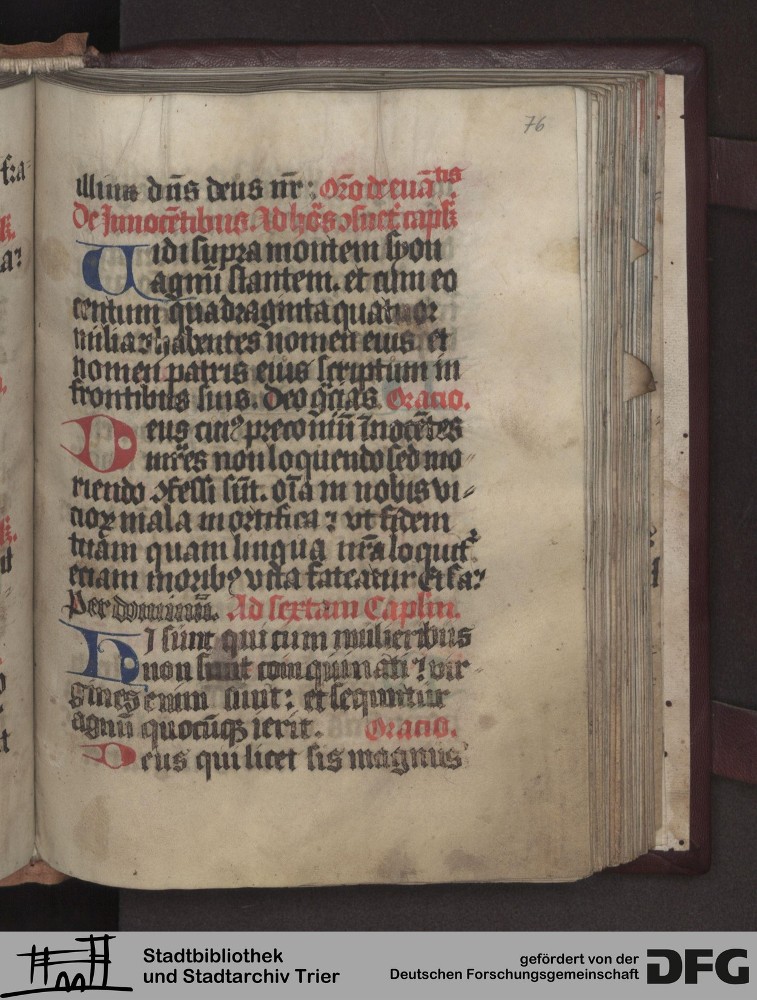 76
illum dn̄s deus nr̄ : Orō de euā
De Innocētibus. Ad hōs ↄsuet' capl'
Uidi supra montem syon
agnū stantem. et cum eo
centum quadraginta quatuor
milia habentes nomen eius et
nomen patris eius scriptum in
frontibus suis. deo grās. Oracio.
Deus cui⁹ preconiū īnocētes
mr̄es non loquendo sed mo
riendo ↄfessi sūt. oīa in nobis vi⸗
cioꝝ mala mortifica ⁊ vt fidem
tuam quam lingua nr̄a loquit᷑
etiam morib⁹ vita fateatur
Per dominum. Ad sextam Caplm.
HI sunt qui cum mulieribus
non sunt coinquinati ⁊ vir⸗
gines enim sunt : et sequuntur
agnū quocūqꝫ ierit. Oracio.
Deus qui licet sis magnus
Stadtbibliothek
und Stadtarchiv Trier
gefördert von der
Deutschen Forschungsgemeinschaft
DFG